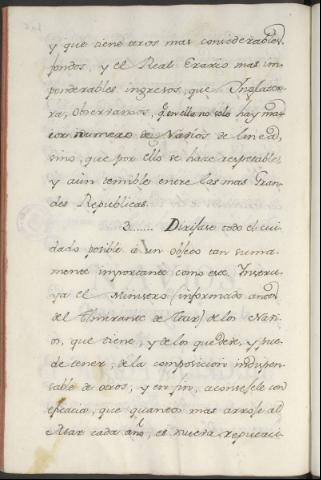 y que tiene otros mas considerables
fondos, y el Real Erario mas im-
ponderables ingresos, que Inglater-
ra, observamos, q.e en ella no solo hay ma-
ior numero de Navios de linea,
sino, que por ello se hace respetable,
y aùn temible entre las mas Gran-
des Republicas.
3...... Dirijase todo el cui-
dado posible á un objeto tan suma-
mente importante como ese. Instru-
ya el Ministro (informado antes
del Almirante de Mar) de los Navi-
os, que tiene, y de los que deve, y pue-
de tener; de la composicion indispen-
sable de otros; y en fin, aconsejele con
eficacia, que quantos mas arroje al
Mar cada año, es nueva reputaci-